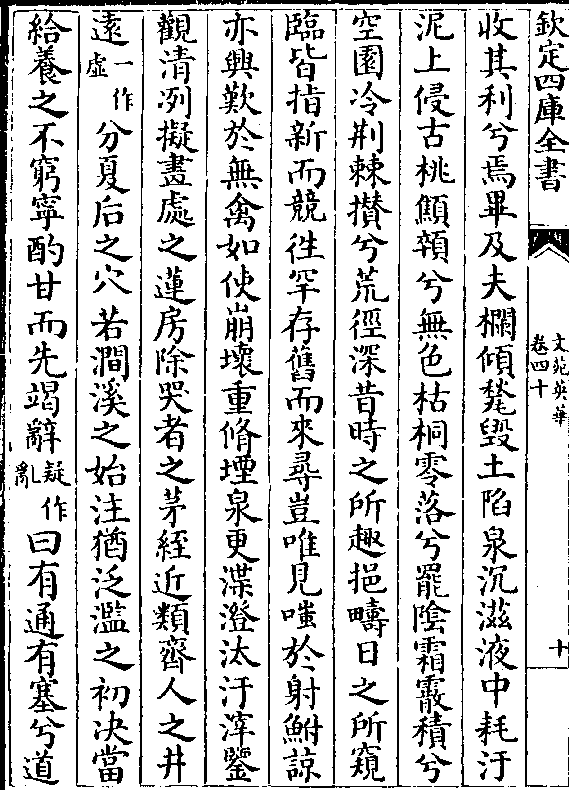 欽定四庫全書
文苑英華
卷四十
十
收其利兮焉畢及夫欄傾甃毀土陷泉沉滋液中耗汙
泥上侵古桃顦顇兮無色枯桐零落兮罷陰霜霰積兮
空園冷荆棘攅兮荒徑深昔時之所趣挹疇日之所窺
臨皆指新而競徃罕存舊而來尋豈唯見嗤於射鮒諒
亦興歎於無禽如使崩壞重脩堙泉更渫澄汰汙滓鑒
觀清冽擬畫處之蓮房除哭者之茅絰近類齊人之井
遠一作虚分夏后之穴若澗溪之始注猶泛濫之初决當
給養之不窮寧酌甘而先竭辭疑作亂曰有通有塞兮道